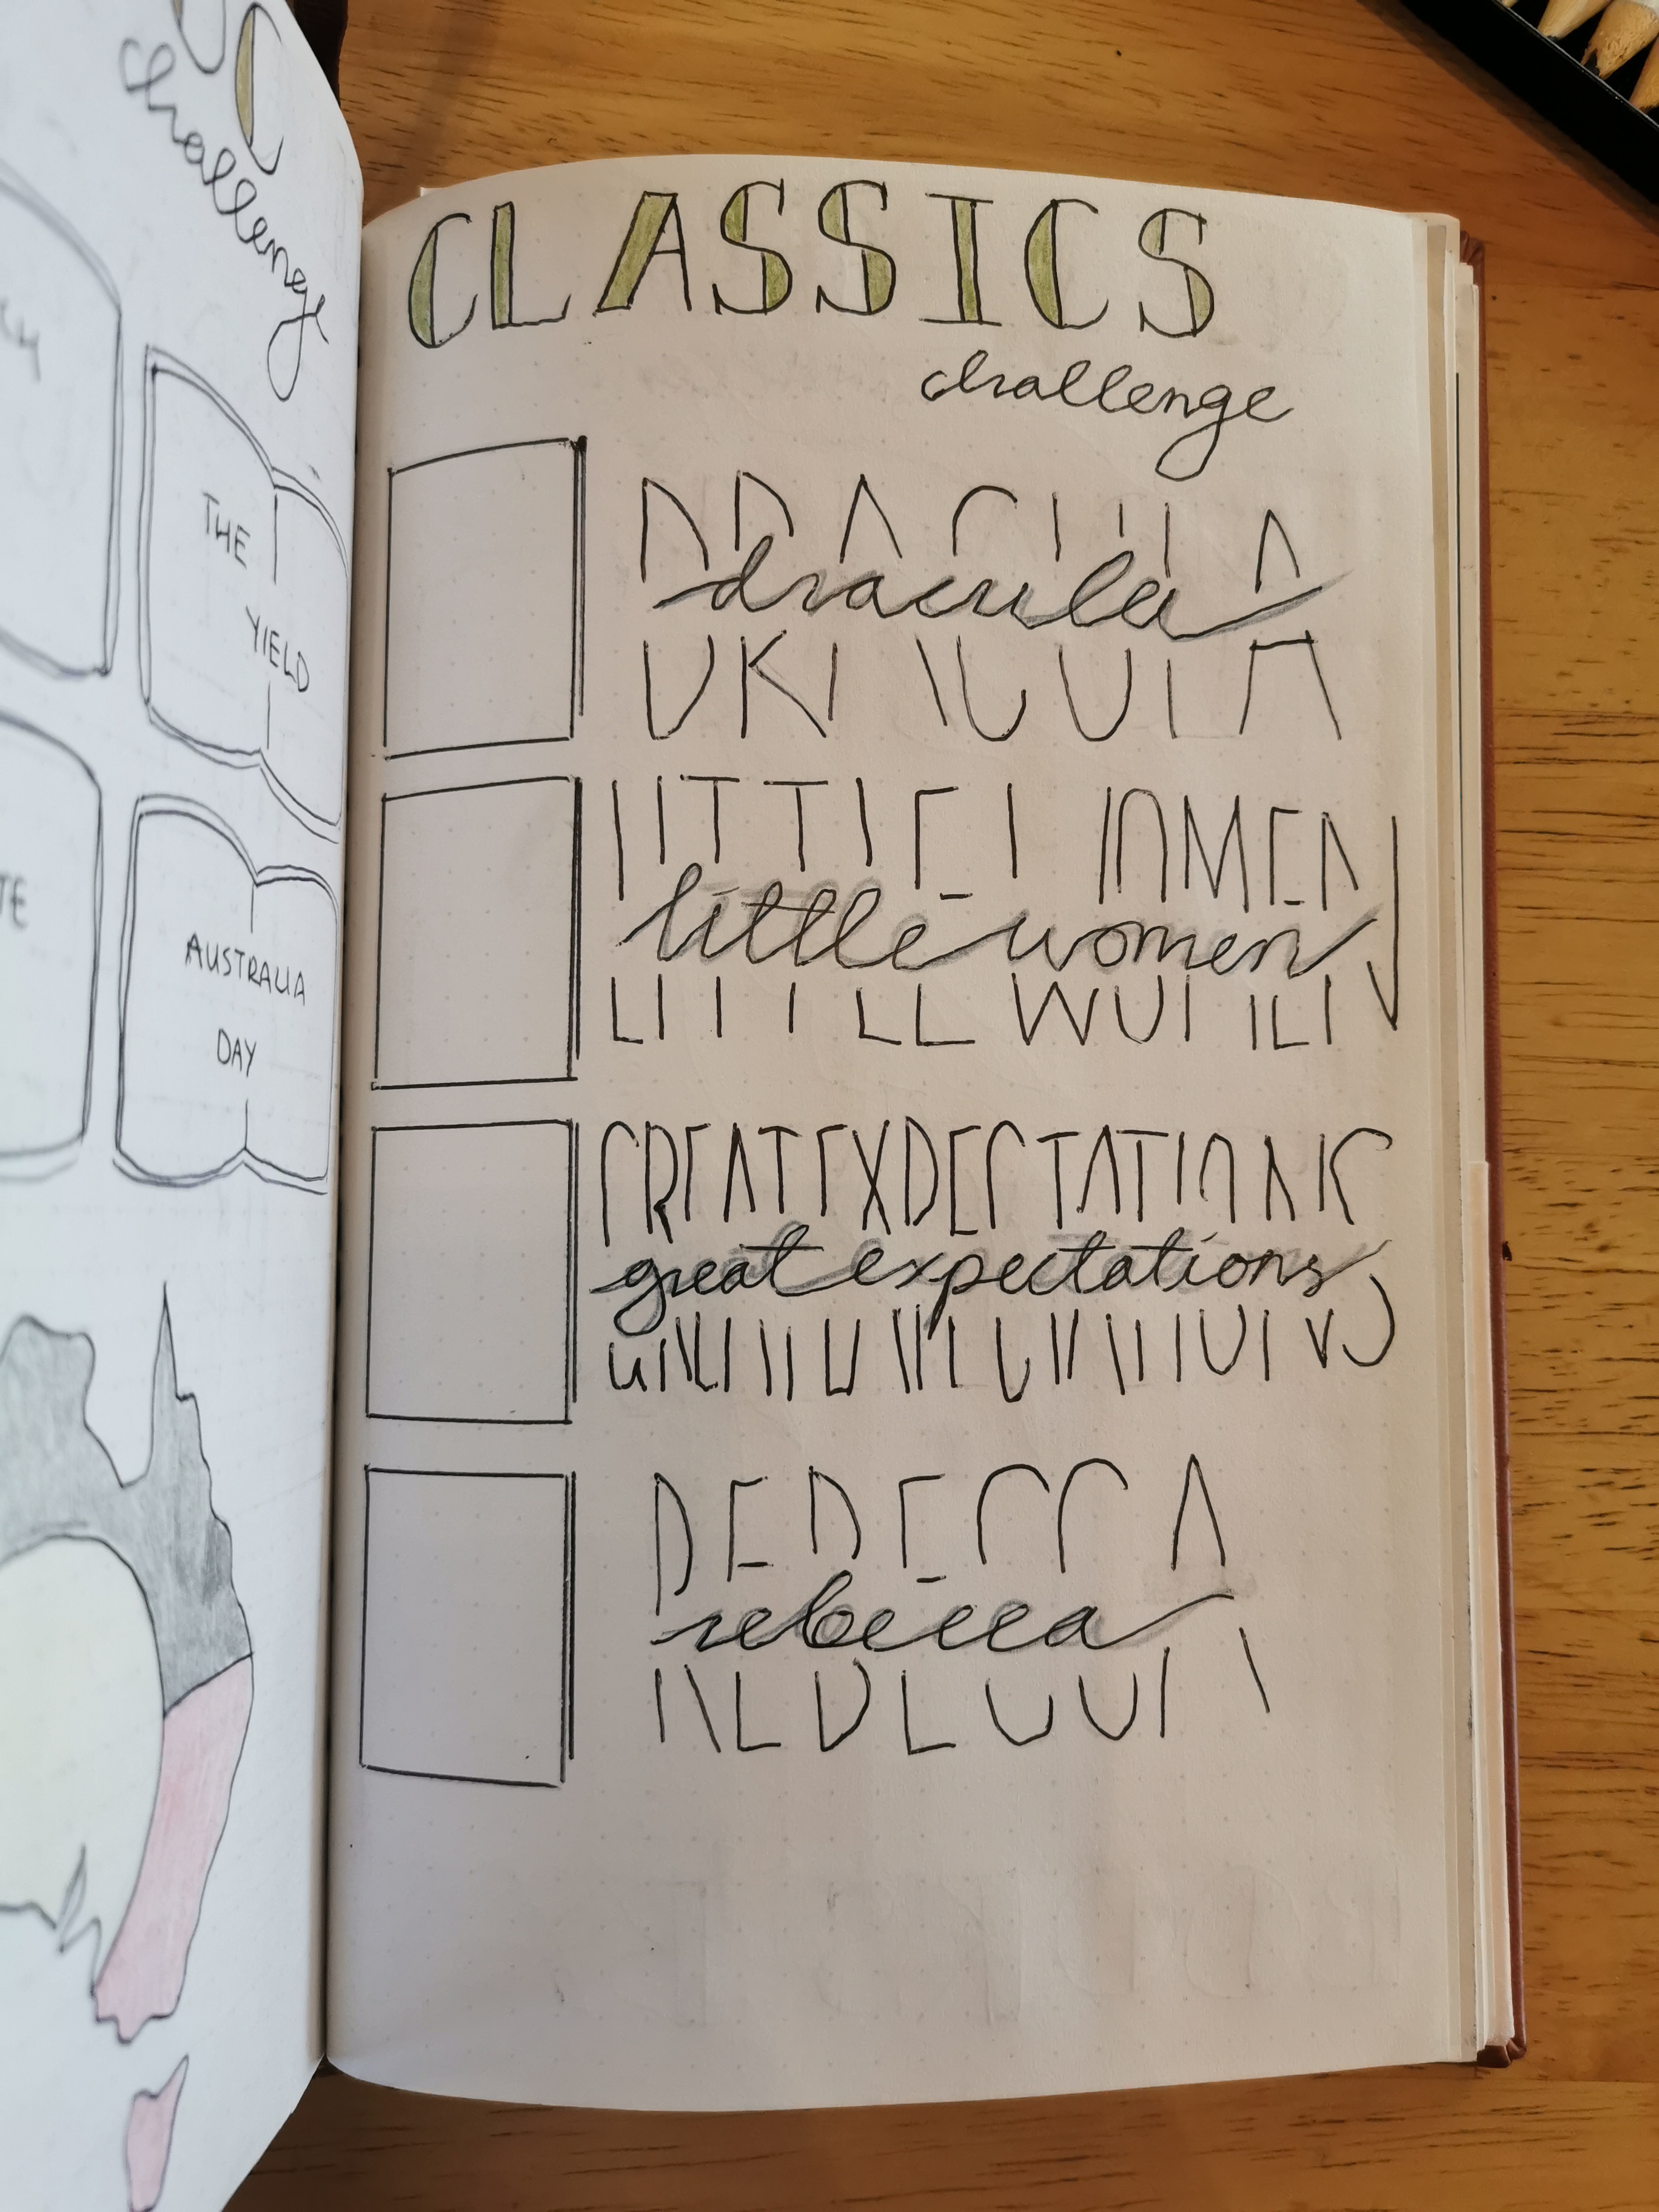 challeng
THE
YIELD
AUSTRALIA
DAY
CLASSICS
challenge
DRACULA
dracula
LITTLE WOMEN
little women
GREAT EXPECTATIONS
great expectations
REBECCA
rebecca